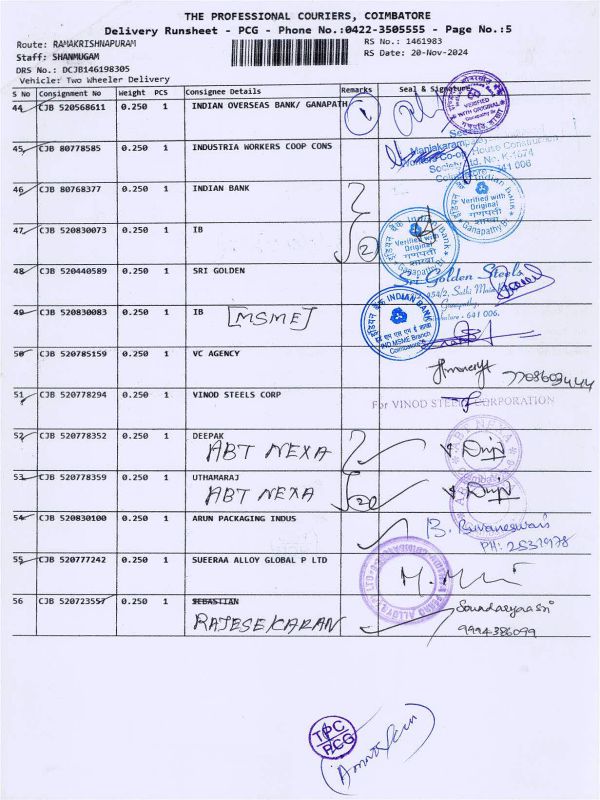 THE PROFESSIONAL COURIERS, COIMBATORE
Delivery Runsheet - PCG - Phone No.:0422-3505555 - Page No.:5
Route: RAMAKRISHNAPURAM
RS No.: 1461983
Staff: SHANMUGAM
RS Date: 20-Nov-2024
DRS No.: DCJB146198305
Vehicle: Two Wheeler Delivery
S No Consignment No Weight PCS Consignee Details Remarks Seal & Signature
44 CJB 520568611 0.250 1 INDIAN OVERSEAS BANK/ GANAPATH 1
VERIFIED WITH ORIGINAL
45 CJB 80778585 0.250 1 INDUSTRIA WORKERS COOP CONS
Workers Co-op. House Construction
Society Ltd. No. K-1574
641 006
46 CJB 80768377 0.250 1 INDIAN BANK
Indian Bank Verified with Original गणपती शाखा Ganapathy Br
47 CJB 520830073 0.250 1 IB 2
Indian Bank Verified with Original गणपती शाखा Ganapathy Br
48 CJB 520440589 0.250 1 SRI GOLDEN
Sri Golden Steels
254/2, Sathi Main
Ganapathy,
641 006.
49 CJB 520830083 0.250 1 IB [MSME]
INDIAN BANK IND MSME Branch Coimbatore
50 CJB 520785159 0.250 1 VC AGENCY
7708603444
51 CJB 520778294 0.250 1 VINOD STEELS CORP
For VINOD STEELS CORPORATION
52 CJB 520778352 0.250 1 DEEPAK
ABT NEXA
ABT NEXA
53 CJB 520778359 0.250 1 UTHAMARAJ
ABT NEXA
54 CJB 520830100 0.250 1 ARUN PACKAGING INDUS
B. Buvaneswari
PH: 2531978
55 CJB 520777242 0.250 1 SUEERAA ALLOY GLOBAL P LTD
56 CJB 520723557 0.250 1 SEBASTIAN
RAJESEKARAN
Soundaryaasri
9994386099
TPC
PCG